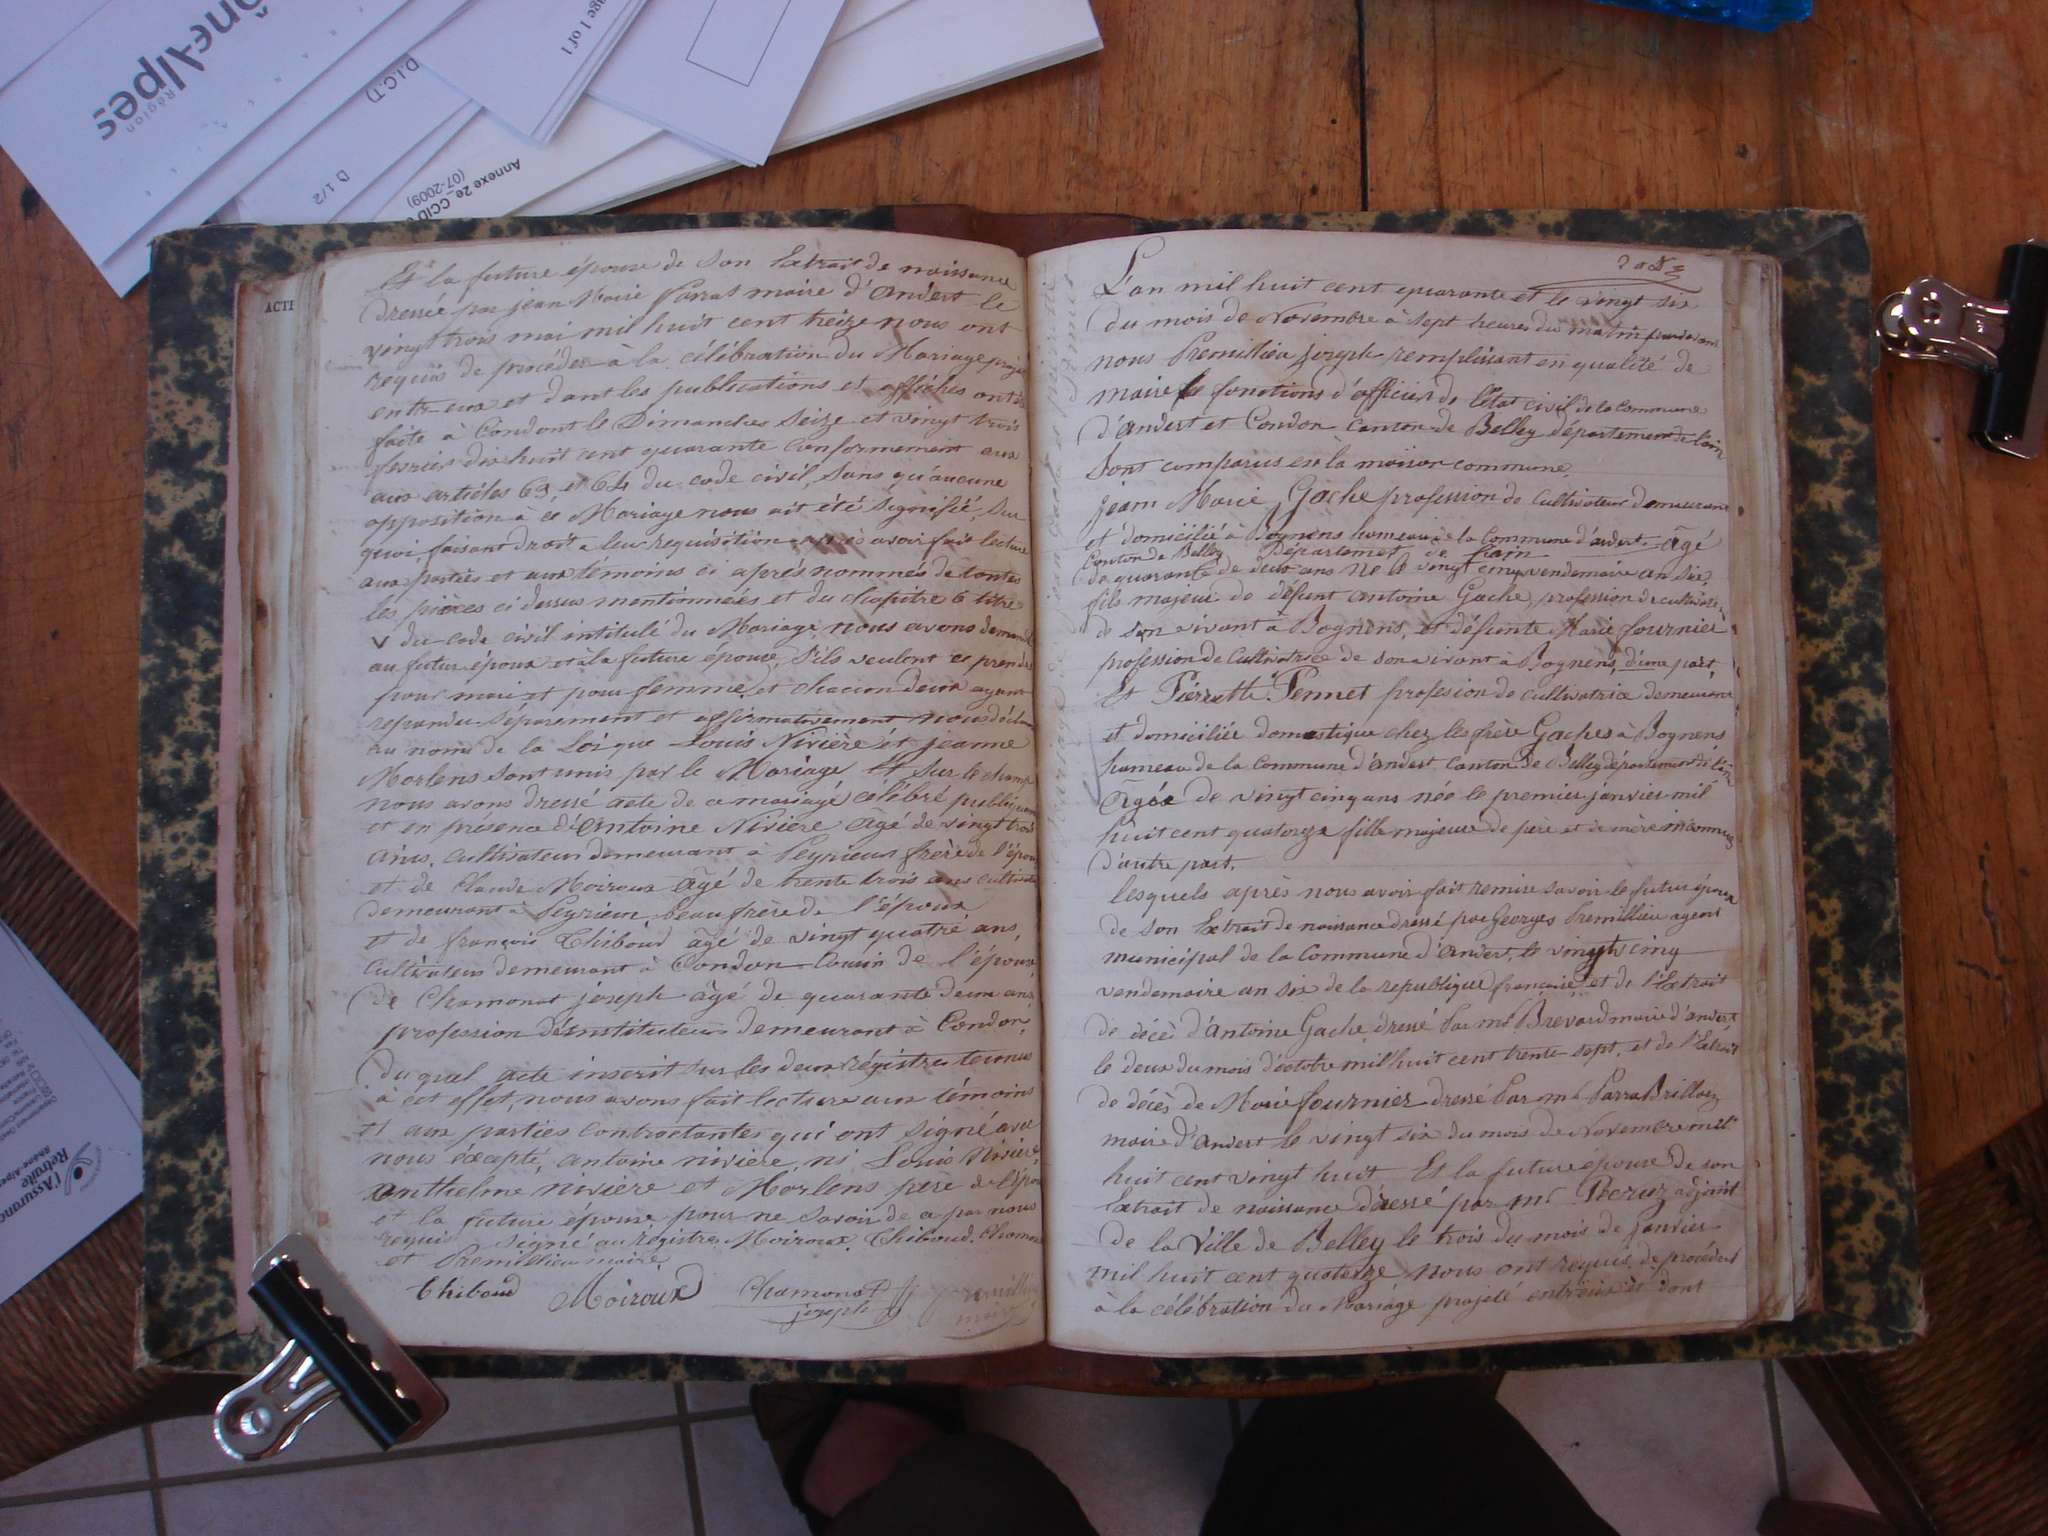 Rhône-Alpes
Région
D.I.C.T)
D 1/2
age 1 of 1
Annexe 2e_CCID
(07-2009)
ACTE
l'Assurance
Retraite
Rhône-Alpes
Et la future épouse de son Extrait de naissance
dressé par jean Marie Parrat maire d'Andert le
vingt trois mai mil huit cent treize nous ont
requis de procéder à la célébration du Mariage projeté
entr eux et dont les publications et affiches ont été
faite à Condont le Dimanches Seize et vingt trois
fevrier dix huit cent quarante conformement aux
aux articles 63 et 64 du code civil, sans qu'aucune
opposition à ce Mariage nous ait été signifié, sur
quoi, faisant droit a leur requisition après avoir fait lecture
aux parties et aux témoins ci après nommés de toutes
les pièces ci dessus mentionnées et du chapitre 6 titre
V du code civil intitulé du Mariage, nous avons demandé
au futur époux et à la future épouse, s'ils veulent se prendre
pour mari et pour femme, et chacun deux ayant
repondu séparement et affirmativement nous déclarons
au nom de la Loi que Louis Nivière et jeanne
Morlens sont unis par le Mariage. Et sur le champ
nous avons dressé acte de ce mariage célébré publiquement
et en présence d'antoine Nivière agé de vingt trois
ans, cultivateur demeurant à Peyrieux frère de l'époux
et de Claude Moiroux âgé de trente trois ans cultivateur
demeurant à Peyrieux beau frère de l'époux
et de françois Thiboud âgé de vingt quatre ans,
cultivateur demeurant à Condon Cousin de l'épouse
de Chamonat joseph âgé de quarante deux ans
profession d'instituteur demeurant à Condon,
du quel acte inscrit sur les deux régistres tenus
à cet effet, nous avons fait lecture aux témoins
et aux parties contractantes qui ont signé avec
nous éxcepté, antoine nivière, ni Louis Nivière,
anthelme nivière et Morlens père de l'épouse
et la future épouse pour ne savoir de a par nous
requis signé au régistre Moiroux, Thiboud, Chamonat
et Premillieu maire
Thiboud Moiroux Chamonat premillieu
joseph maire
L'an mil huit cent quarante et le vingt six
du mois de Novembre à sept heures du matin pardevant
nous Premillieu joseph remplissant en qualité de
maire les fonctions d'officier de l'état civil de la Commune
d'andert et Condon canton de Belley département de l'ain
Sont comparus en la maison commune
jean Marie Gache profession de Cultivateur demeurant
et domicilié à Bognens hameau de la Commune d'andert. agé
Canton de Belley Departemet de l'ain
de quarante de deux ans né le vingt cinq vendemaire an six,
fils majeur de défunt antoine Gache, profession de cultivateur
de son vivant à Bognens, et défunte Marie fournier
profession de Cultivatrice de son vivant à Bognens, d'une part,
Et Pierrette Pennet profesion de cultivatrice demeurant
et domiciliée domestique chez les frère Gaches à Bognens
hameau de la Commune d'andert Canton de Belley département de l'ain
agée de vingt cinq ans née le premier janvier mil
huit cent quatorze fille majeure de père et de mère inconnus
d'autre part.
lesquels après nous avoir fait remise savoir le futur époux
de son Extrait de naissance dressé par Georges Premillieu agent
municipal de la Commune d'andert, le vingt cinq
vendemaire an six de la republique francaise, et de l'Extrait
de décès d'antoine Gache dressé Par mr Brevard maire d'andert
le deux du mois d'octobre mil huit cent trente sept, et de l'Extrait
de décès de Marie fournier dressé Par mr Parra Brillaz
maire d'andert le vingt six du mois de Novembre mil
huit cent vingt huit Et la future épouse de son
Extrait de naissance dressé par mr adjoint
de la Ville de Belley le trois du mois de janvier
mil huit cent quatorze nous ont requis de procéder
à la célébration du Mariage projeté entr'eux et dont